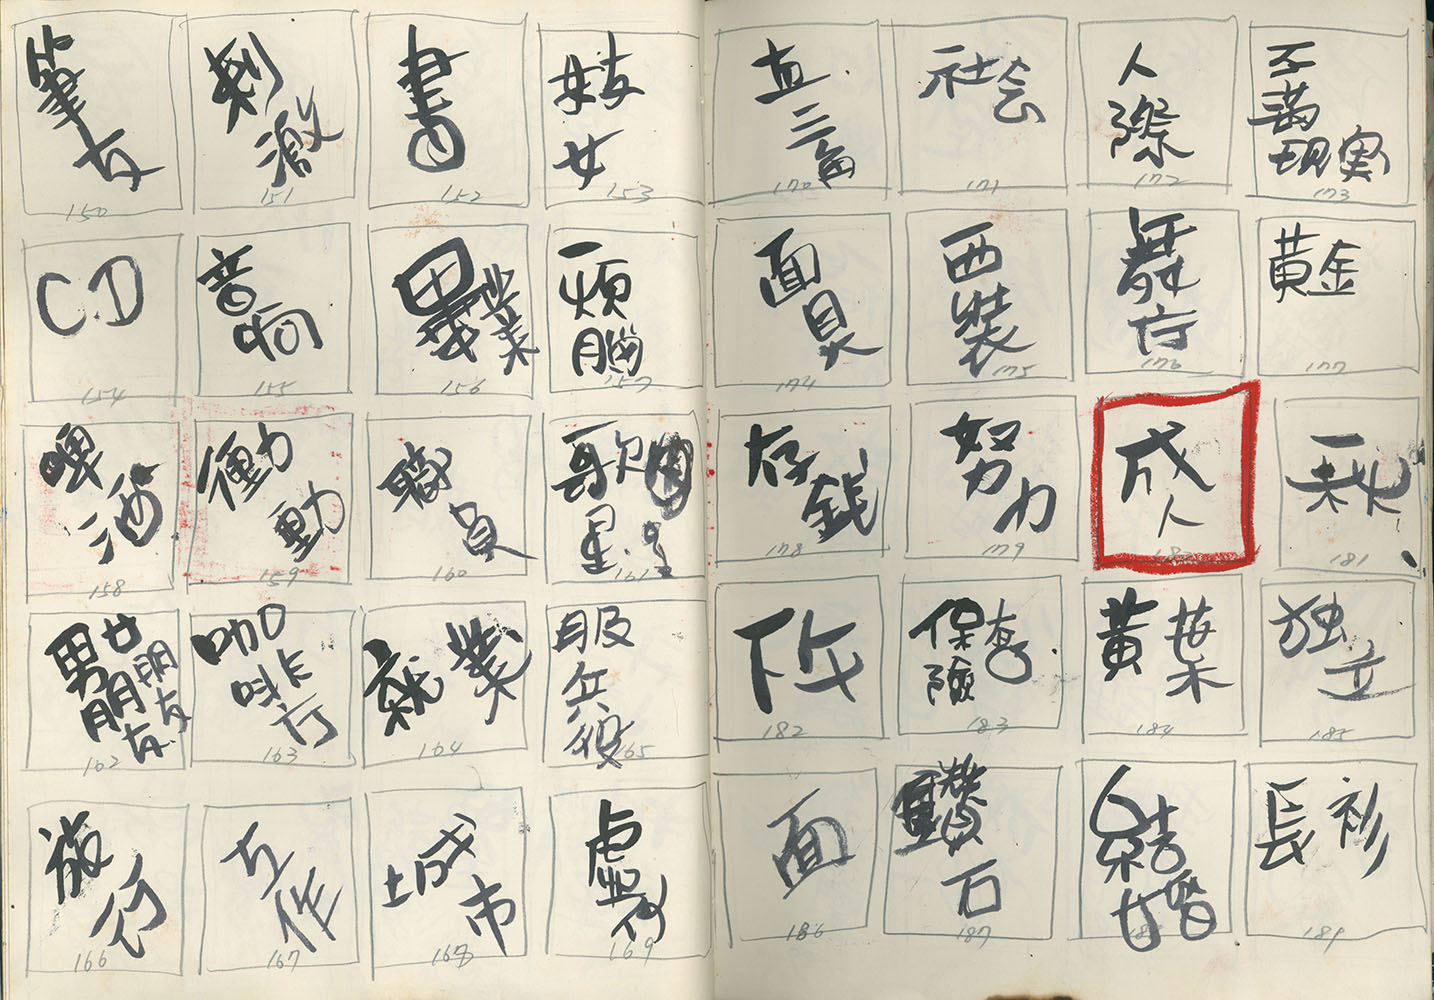 筆友
150
刺激
151
書
152
妓女
153
CD
154
音响
155
畢業
156
煩腦
157
啤酒
158
衝動
159
職員
160
歌星
161
男女朋友
162
咖啡庁
163
就業
164
服兵役
165
旅行
166
工作
167
城市
168
虛
169
170
社会
171
人際
172
不滿現実
173
面具
174
西裝
175
舞庁
176
黃金
177
存錢
178
努力
179
成人
秋
181
182
保險
183
黃葉
184
独立
185
面
186
鑽石
187
結婚
長衫
189